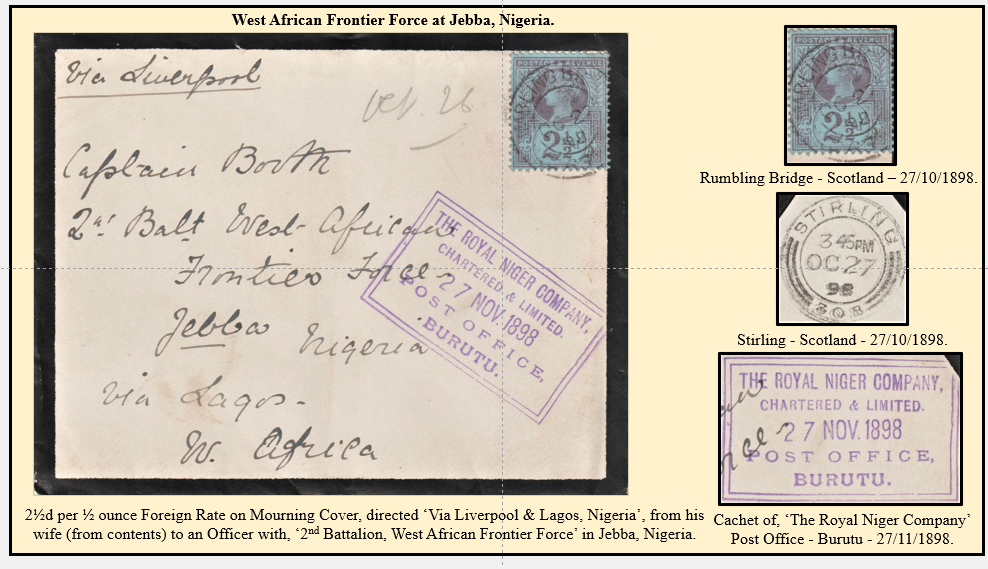 West African Frontier Force at Jebba, Nigeria.
Via Liverpool
Oct. 26
POSTAGE & REVENUE
2½D
Captain Booth
2nd Balt West African
Frontier Force
Jebba Nigeria
via Lagos-
W. Africa
THE ROYAL NIGER COMPANY,
CHARTERED & LIMITED.
27 NOV. 1898
POST OFFICE,
BURUTU.
2½d per ½ ounce Foreign Rate on Mourning Cover, directed ‘Via Liverpool & Lagos, Nigeria’, from his
wife (from contents) to an Officer with, ‘2nd Battalion, West African Frontier Force’ in Jebba, Nigeria.
POSTAGE & REVENUE
2½D
Rumbling Bridge - Scotland – 27/10/1898.
STIRLING
3 45PM
OC 27
98
308
Stirling - Scotland - 27/10/1898.
THE ROYAL NIGER COMPANY,
CHARTERED & LIMITED.
27 NOV. 1898
POST OFFICE,
BURUTU.
Cachet of, ‘The Royal Niger Company’
Post Office - Burutu - 27/11/1898.